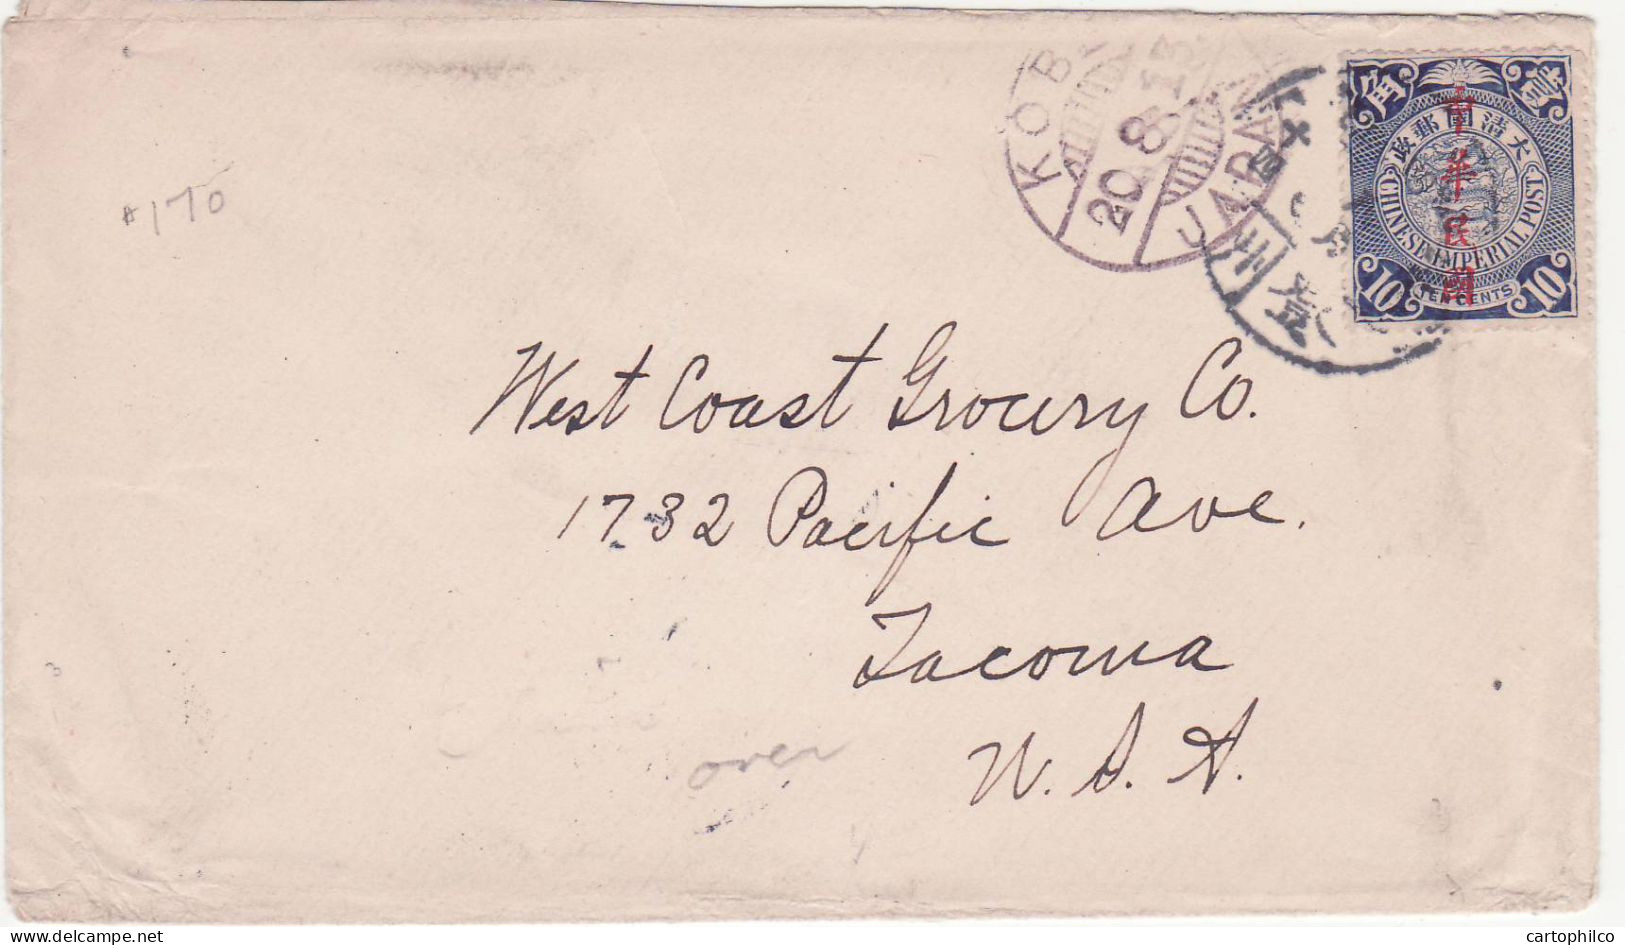 KOB
20.8.13
JAPAN
州
月
壹
角 壹
大清國郵政
中華民國
CHINESE IMPERIAL POST
10 TEN CENTS 10
170
West Coast Grocery Co.
1732 Pacific Ave.
Tacoma
U.S.A.
over
delcampe.net
cartophilco